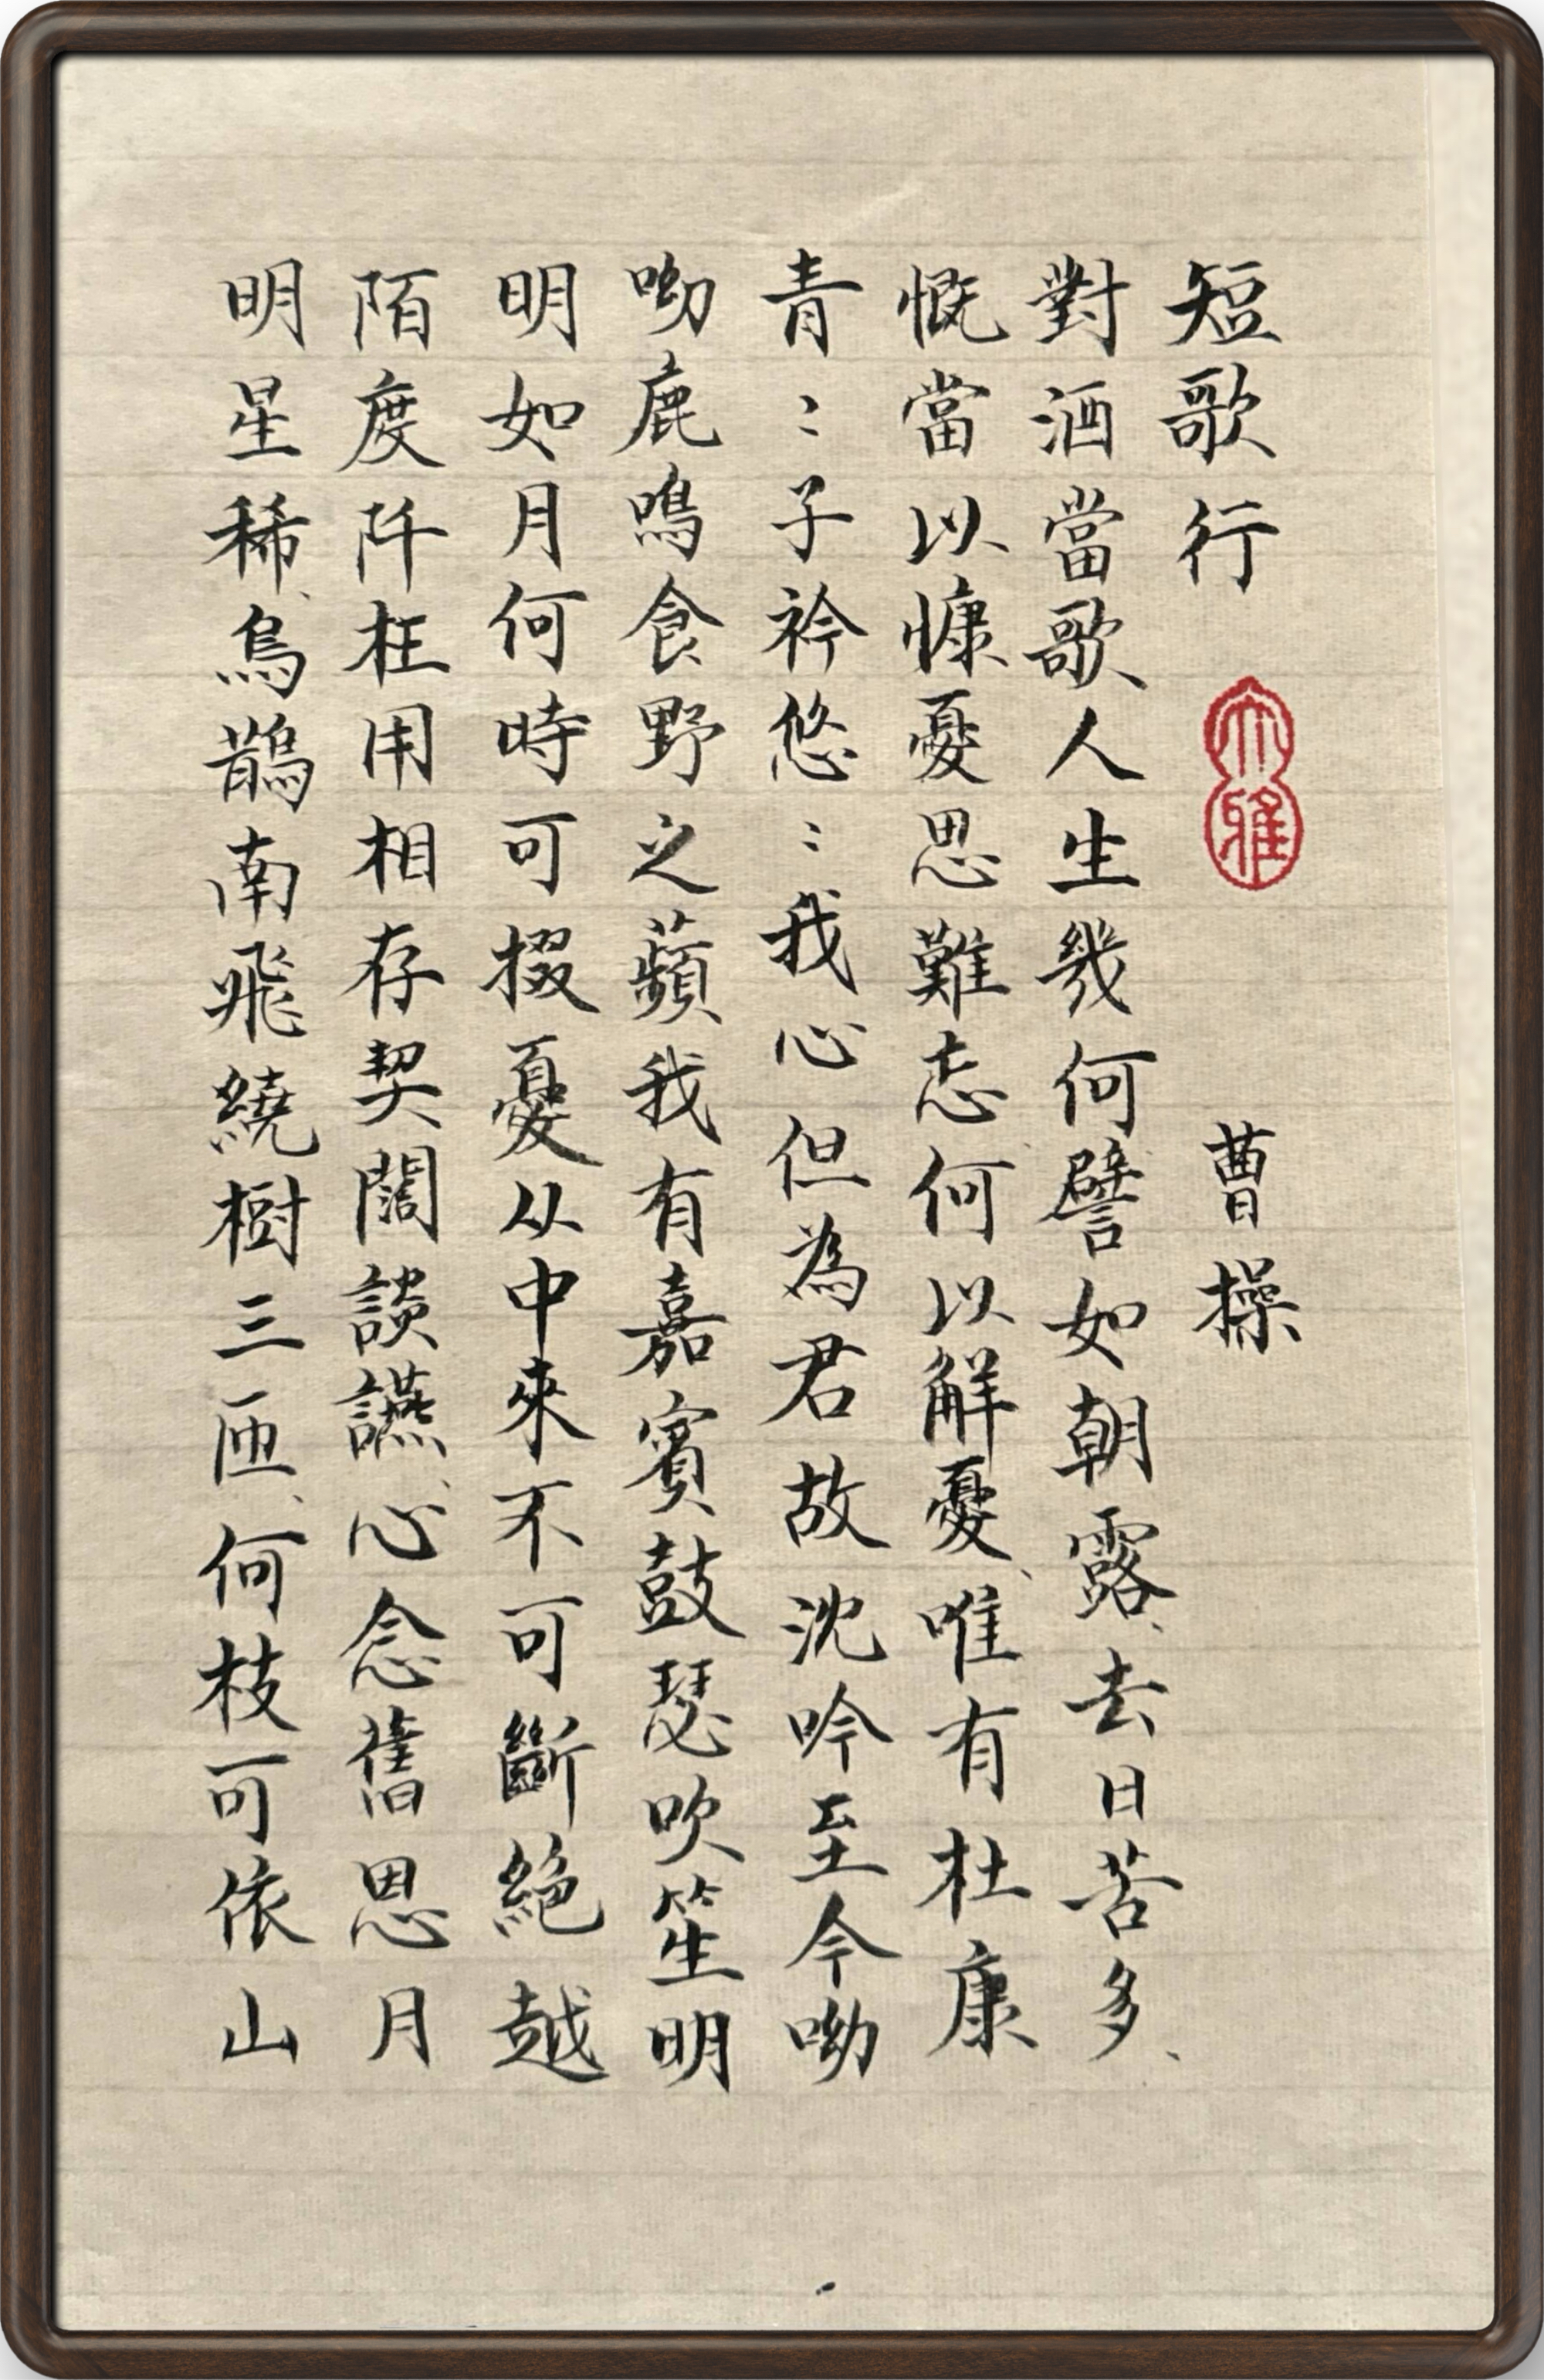 短歌行 大雅 曹操
對酒當歌人生幾何譬如朝露、去日苦多、
慨當以慷憂思難忘何以解憂、唯有杜康
青〻子衿悠〻我心但為君故沈吟至今呦
呦鹿鳴食野之蘋我有嘉賓鼓瑟吹笙明
明如月何時可掇憂从中來不可斷絕越
陌度阡枉用相存契闊談讌、心念舊恩月
明星稀、烏鵲南飛繞樹三匝、何枝可依山